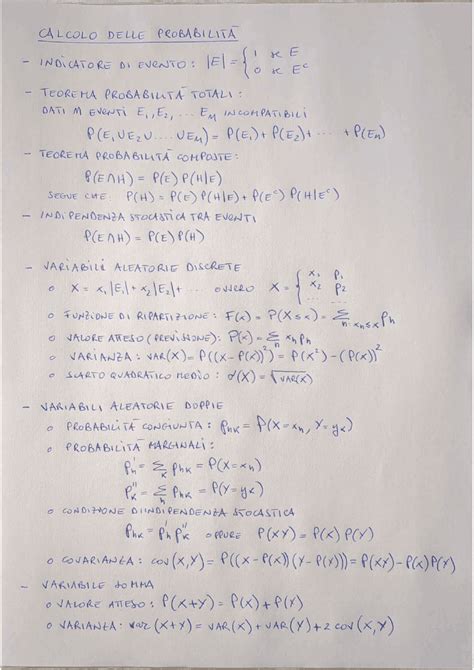 CALCOLO DELLE PROBABILITÀ
- INDICATORE DI EVENTO: |E| = { 1 se E
0 se Eᶜ
- TEOREMA PROBABILITÀ TOTALI:
DATI M EVENTI E₁, E₂, ... Eₘ INCOMPATIBILI
P(E₁∪E₂∪.....∪Eₘ) = P(E₁) + P(E₂) + ..... + P(Eₙ)
- TEOREMA PROBABILITÀ COMPOSTE:
P(E∩H) = P(E) P(H|E)
SEGUE CHE: P(H) = P(E) P(H|E) + P(Eᶜ) P(H|Eᶜ)
- INDIPENDENZA STOCASTICA TRA EVENTI
P(E∩H) = P(E) P(H)
- VARIABILI ALEATORIE DISCRETE
o X = x₁|E₁| + x₂|E₂| + ... OVVERO X = { x₁ p₁
x₂ p₂
... ...
o FUNZIONE DI RIPARTIZIONE: F(x) = P(X≤x) = Σ n: xₙ≤x pₙ
o VALORE ATTESO (PREVISIONE): P(X) = Σₙ xₙ pₙ
o VARIANZA: VAR(X) = P((X-P(X))²) = P(X²) - (P(X))²
o SCARTO QUADRATICO MEDIO: σ(X) = √VAR(X)
- VARIABILI ALEATORIE DOPPIE
o PROBABILITÀ CONGIUNTA: pₕₖ = P(X=xₕ, Y=yₖ)
o PROBABILITÀ MARGINALI:
pₕ' = Σₖ pₕₖ = P(X=xₕ)
pₖ'' = Σₕ pₕₖ = P(Y=yₖ)
o CONDIZIONE DI INDIPENDENZA STOCASTICA
pₕₖ = pₕ' pₖ'' OPPURE P(XY) = P(X) P(Y)
o COVARIANZA: COV(X,Y) = P((X-P(X))(Y-P(Y))) = P(XY) - P(X)P(Y)
- VARIABILE SOMMA
o VALORE ATTESO: P(X+Y) = P(X) + P(Y)
o VARIANZA: VAR(X+Y) = VAR(X) + VAR(Y) + 2 COV(X,Y)